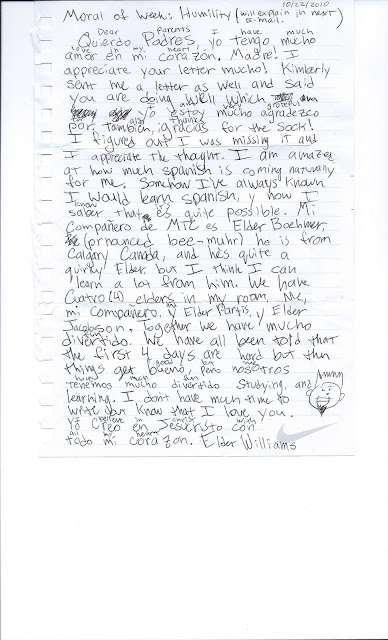 10/22/2010
Moral of Week: Humility (will explain in next
E-mail.
Dear Parents I have much
Quierdo Padres, yo tengo mucho
love in my heart
amor en mi corazón. Madre! I
appreciate your letter mucho! Kimberly
sent me a letter as well and said
you are doing well which
grateful
yo estoy mucho agradezco
also thanks
por. tambien, gracias for the sock!
I figured out I was missing it and
I appreciate the thought. I am amazed
at how much spanish is coming naturally
for me. Somehow I've always known
I would learn spanish, y now I
know it's
saber that es quite possible. Mi
Compañero de MTC es Elder Boehmer,
(prnounced bee-muhr) he is from
Calgary Canada, and he's quite a
quirky Elder but I think I can
learn a lot from him. We have
Cuatro (4) elders in my room, Me,
mi companero, y Elder Partis, y Elder
Jacobson. Together we have mucho
fun
divertido. We have all been told that
the first 4 days are hard but then
good but we
things get bueno, pero nosotros
have much fun
Tenemos mucho divertido studying and
learning. I don't have much time to
write but know that I love you.
I believe in Christ with
Yo creo en Jesucristo con
all my heart
todo mi corazon. Elder Williams